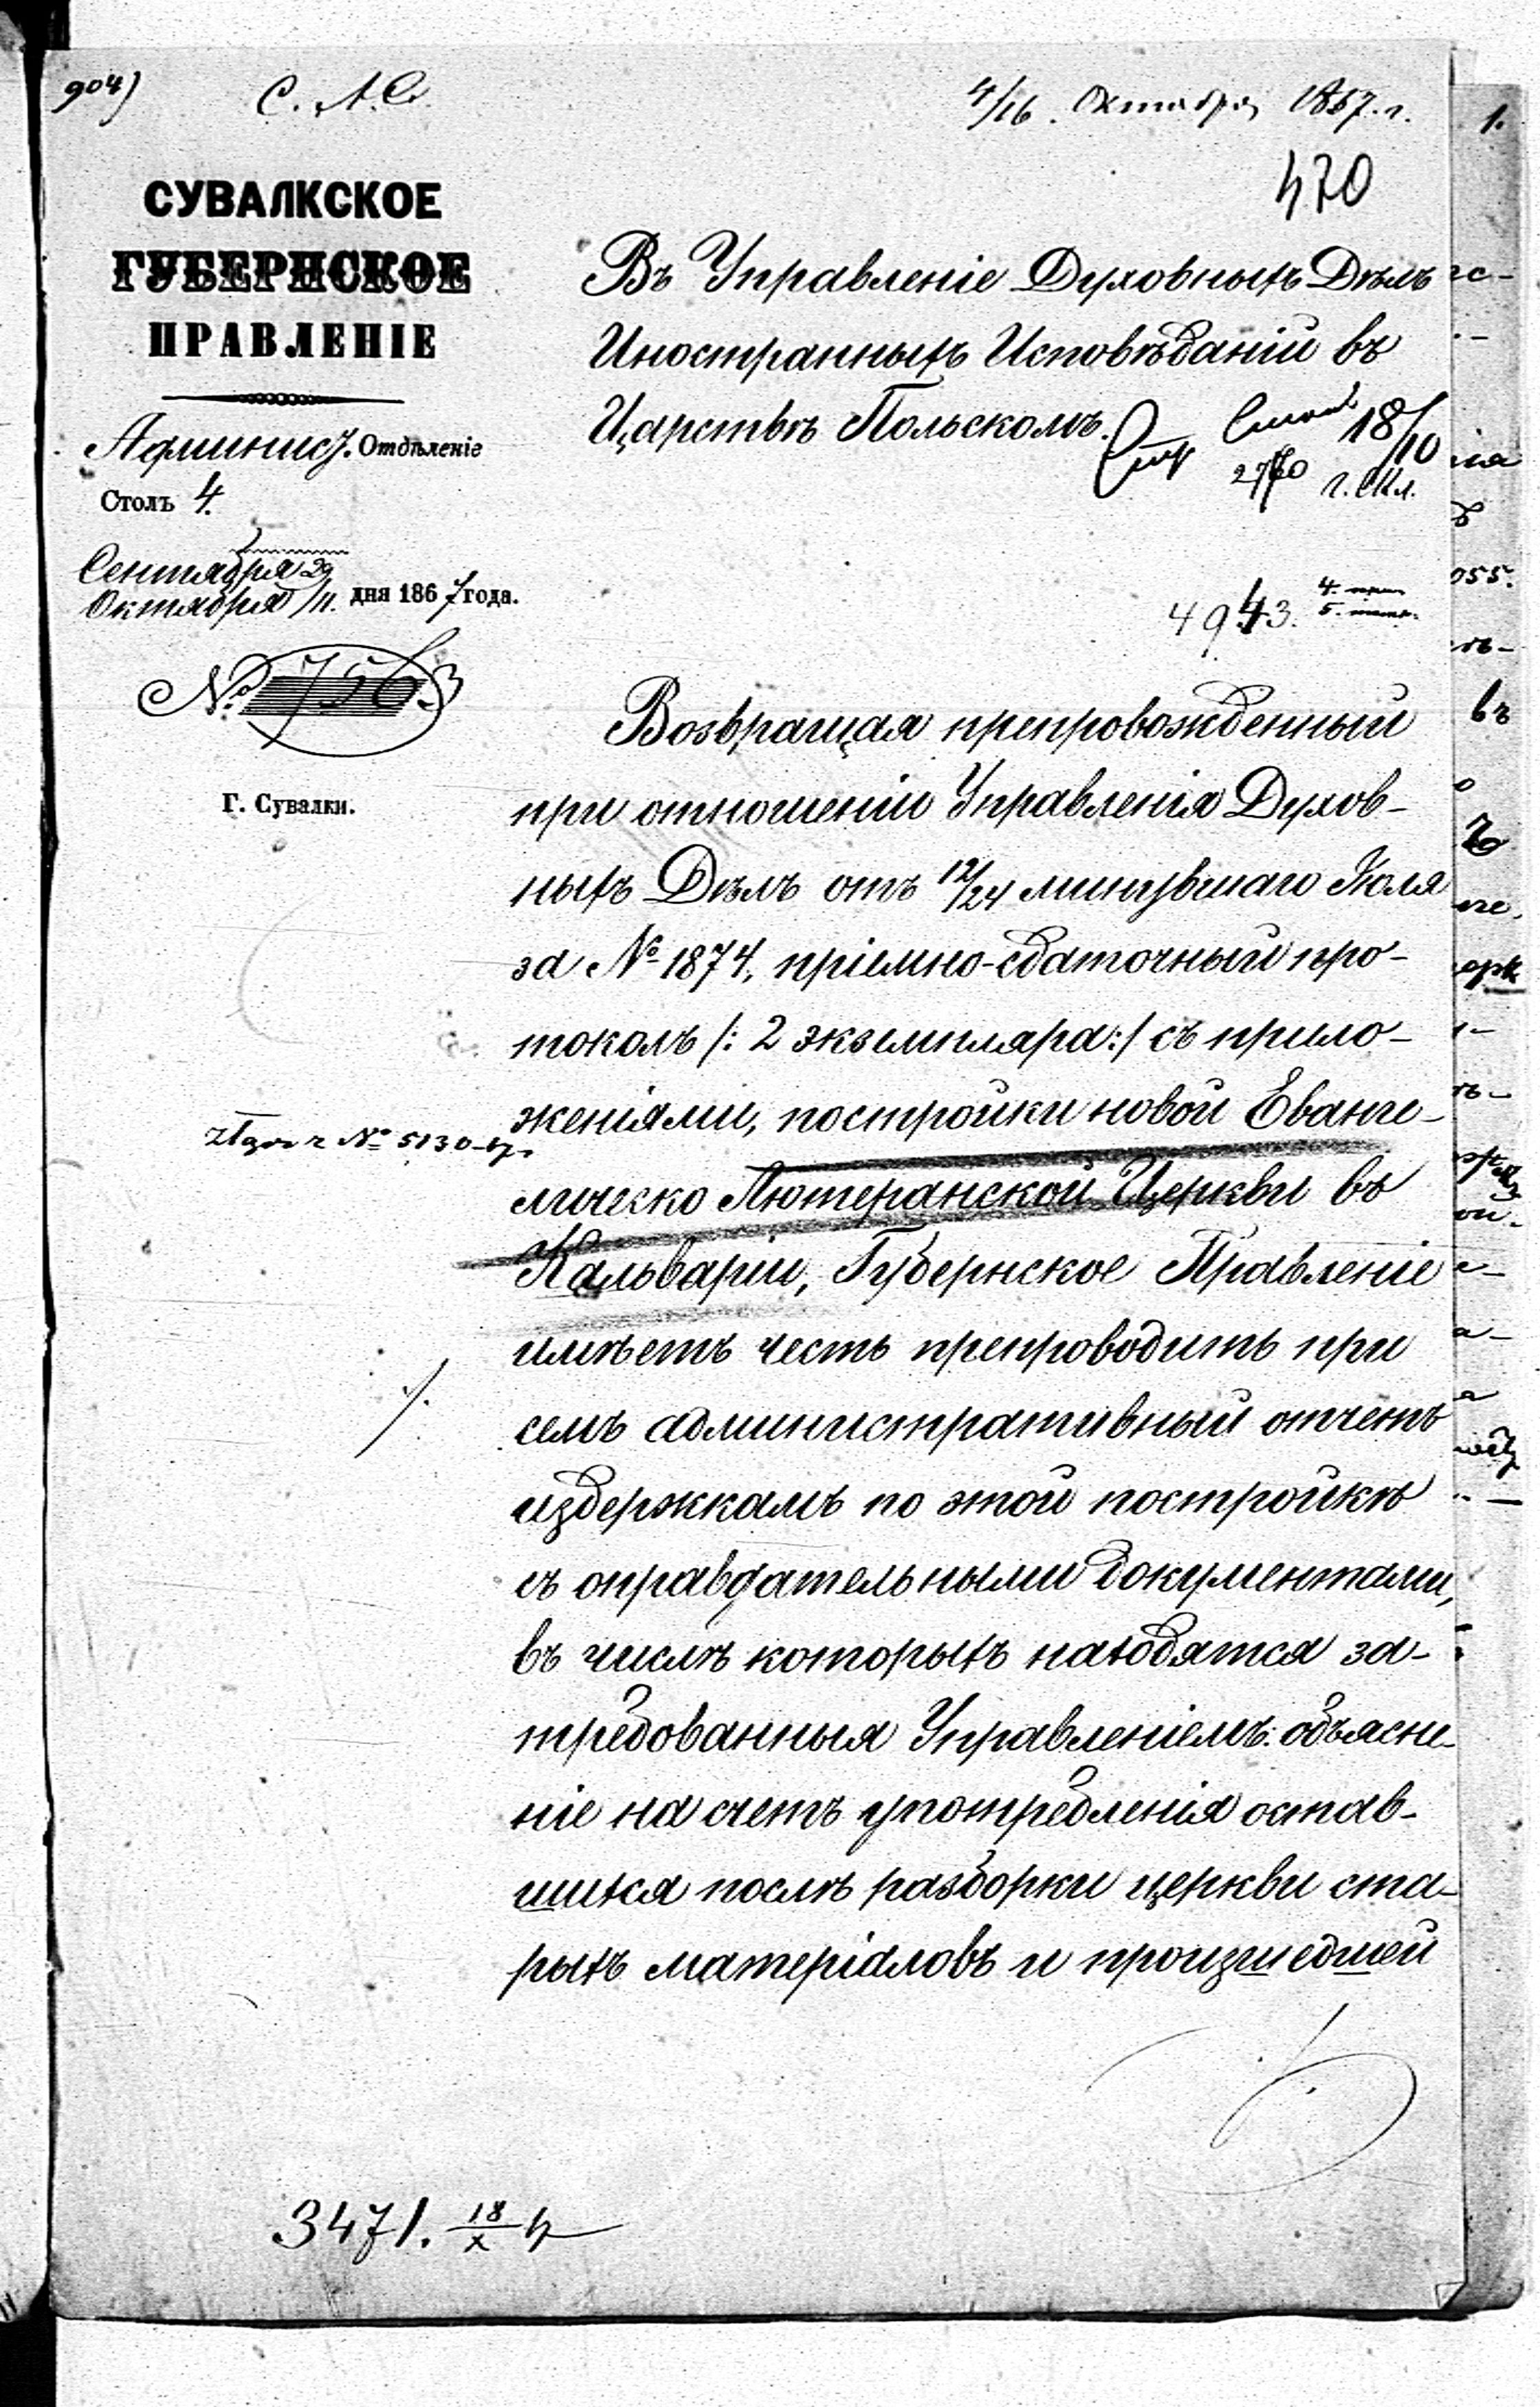 904)
С. А. С.
4/16. Октября 1867. г.
1.
470
СУВАЛКСКОЕ
ГУБЕРНСКОЕ
ПРАВЛЕНІЕ
Админис. Отдѣленіе
Столъ 4.
Сентября 29
Октября /11. дня 1867 года.
№ 7563
Г. Сувалки.
Въ Управленіе Духовныхъ Дѣлъ
Иностранныхъ Исповѣданій въ
Царствѣ Польскомъ.
18/10
4943.
Возвращая препровожденный
при отношеніи Управленія Духов-
ныхъ Дѣлъ отъ 12/24 минувшаго Іюля
за № 1874, пріемно-сдаточный про-
токолъ /: 2 экземпляра:/ съ прило-
женіями, постройки новой Еванге-
лическо Лютеранской Церкви въ
Кальваріи, Губернское Правленіе
имѣетъ честь препроводить при
семъ административный отчетъ
издержкамъ по этой постройкѣ
съ оправдательными документами,
въ числѣ которыхъ находятся за-
требованныя Управленіемъ: объясне-
ніе на счетъ употребленія остав-
шихся послѣ разборки церкви ста-
рыхъ матеріаловъ и происшедшей
№ 5130-67.
3471. 18/X